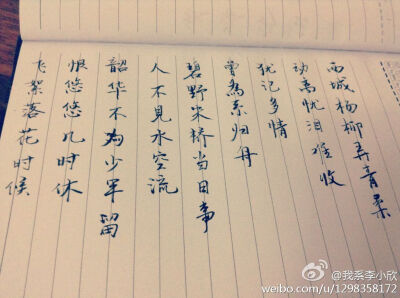 西城杨柳弄青柔
动离忧泪难收
犹记多情
曾为系归舟
碧野朱桥当日事
人不見水空流
韶华不为少年留
恨悠悠几时休
飞絮落花时候
@我系李小欣
weibo.com/u/1298358172